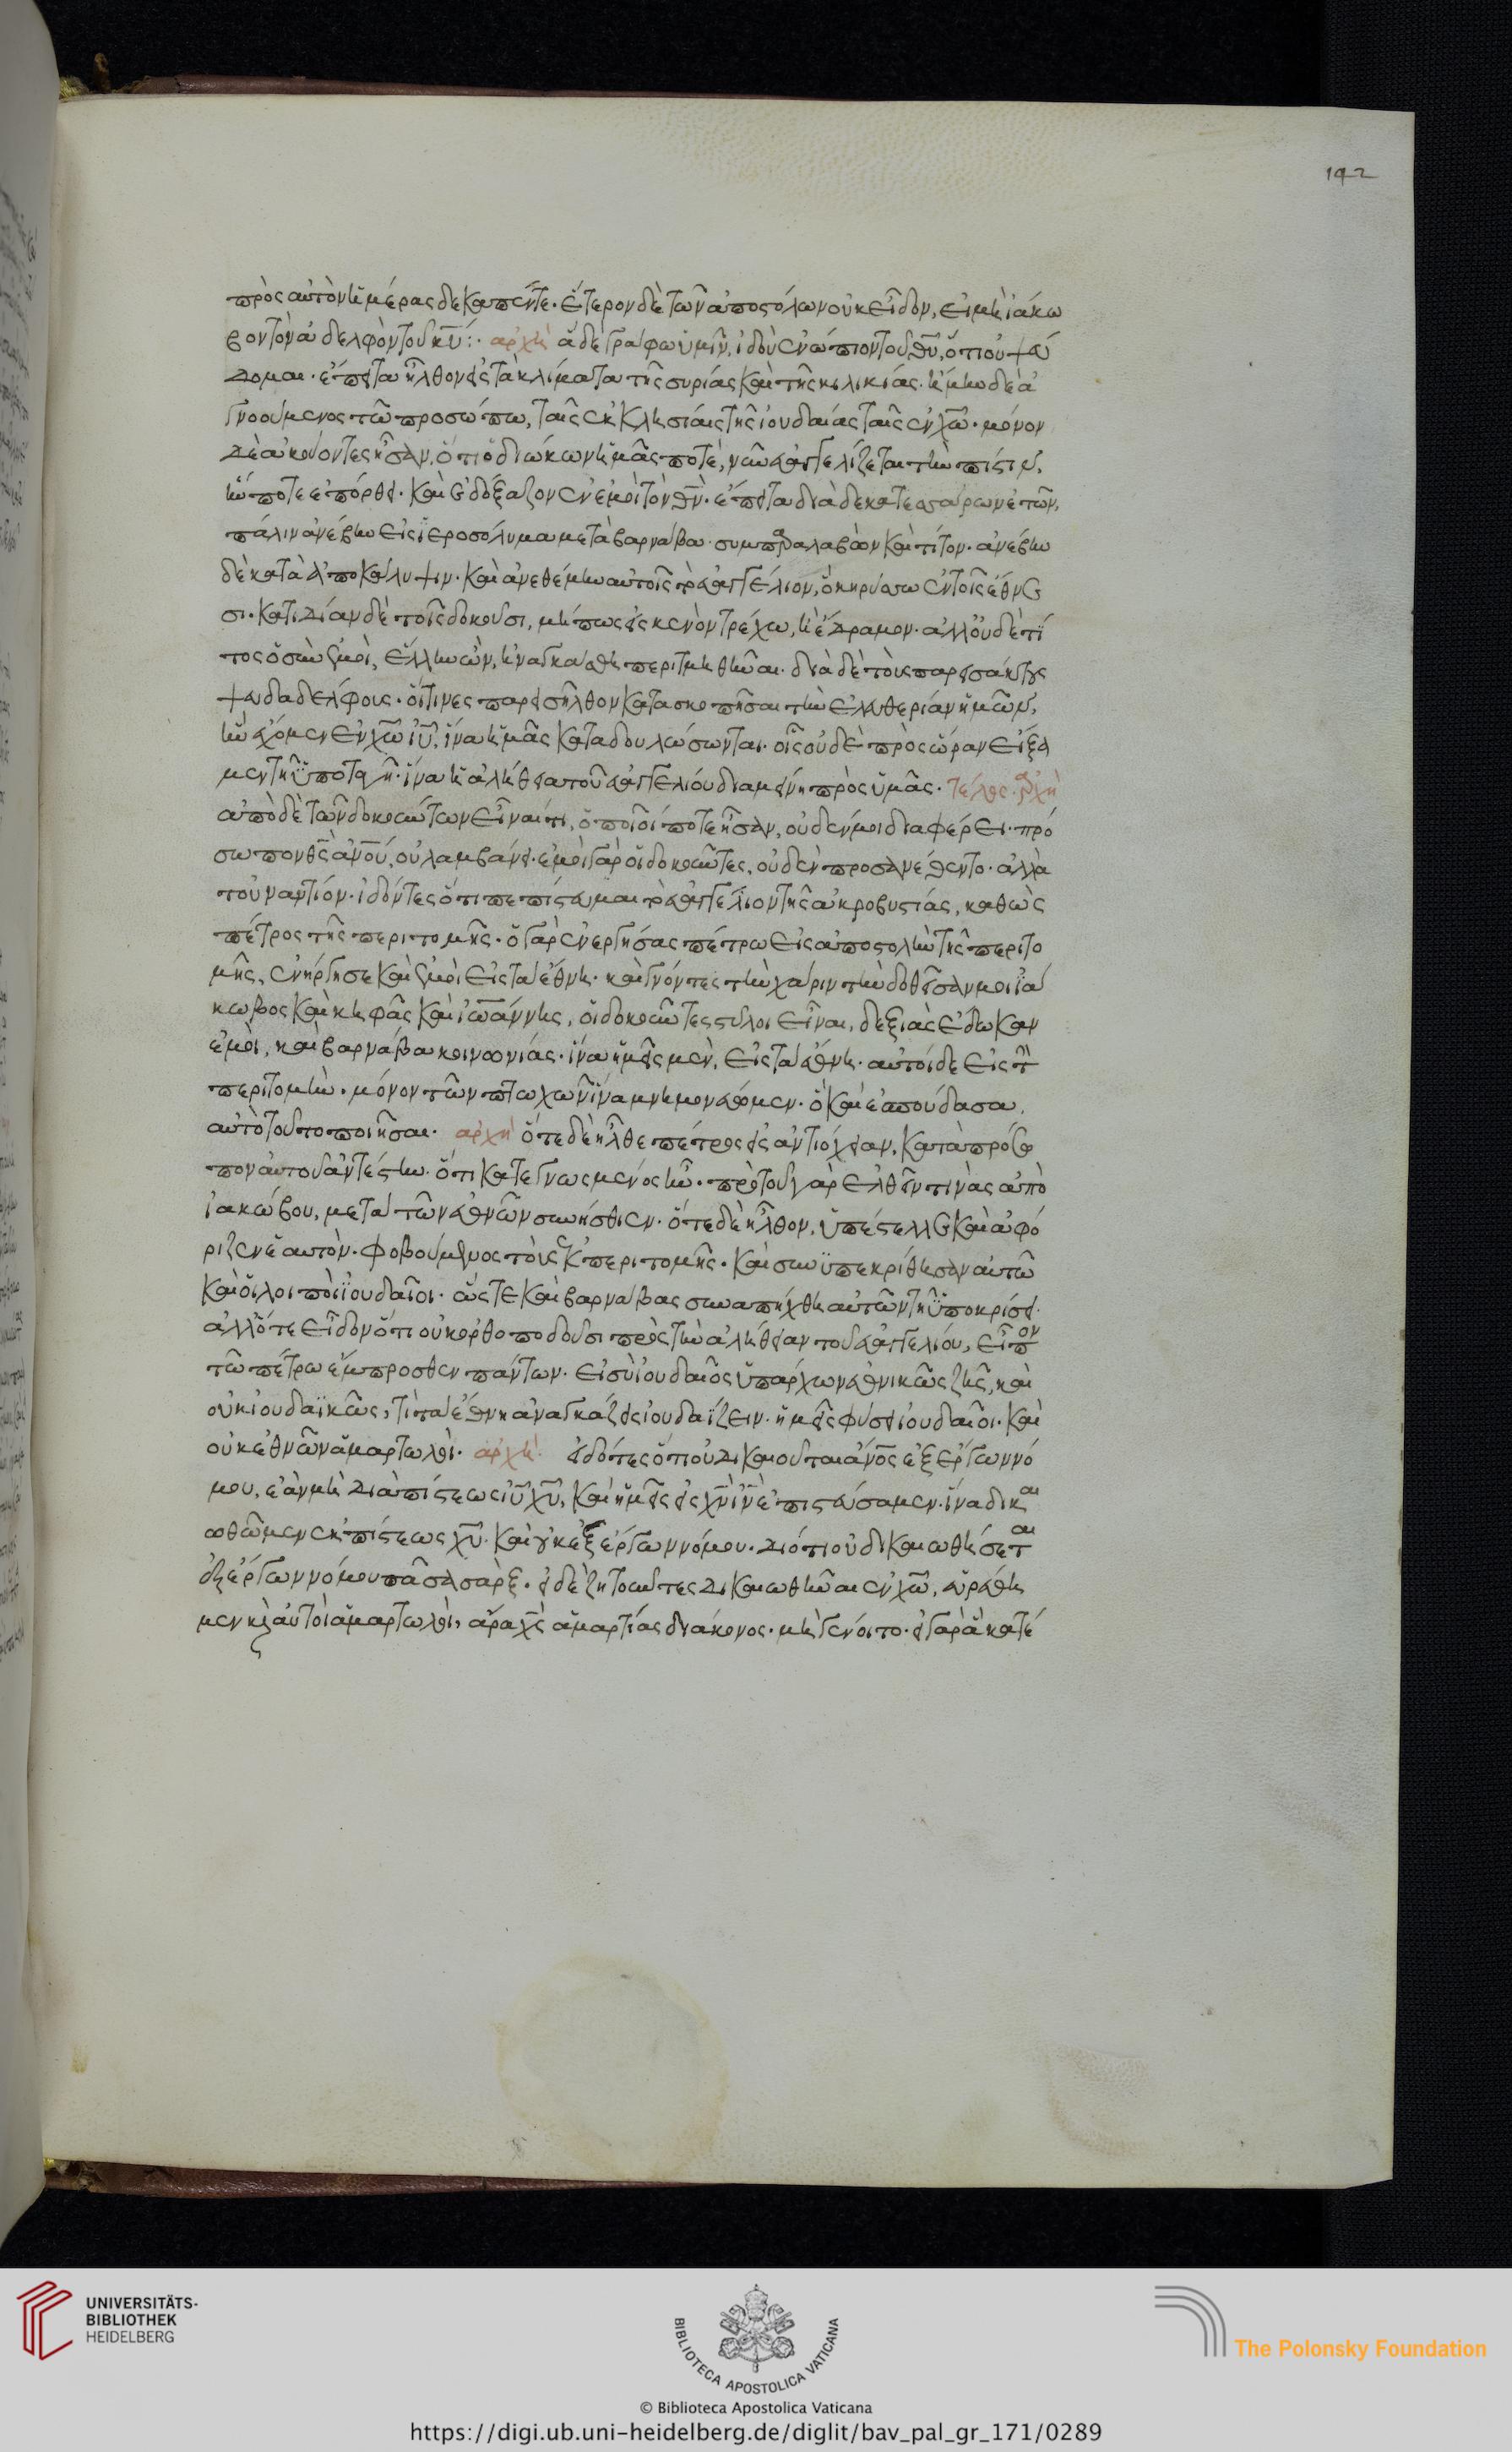 142
πρὸς αὐτὸν ἡμέρας δεκαπέντε· ἕτερον δὲ τῶν ἀποστόλων οὐκ εἶδον, εἰ μὴ ἰάκω
βον τὸν ἀδελφὸν τοῦ κ̅υ̅:· ἀρχὴ ἃ δὲ γράφω ὑμῖν, ἰδοὺ ἐνώπιον τοῦ θ̅υ̅, ὅτι οὐ ψεύ
δομαι· ἔπειτα ἦλθον εἰς τὰ κλίματα τῆς συρίας καὶ τῆς κιλικίας· ἤμην δὲ ἀ
γνοούμενος τῶ προσώπω, ταῖς ἐκκλησίαις τῆς ἰουδαίας ταῖς ἐν χ̅ω̅· μόνον
δὲ ἀκούοντες ἦσαν, ὅτι ὁ διώκων ἡμᾶς ποτὲ, νῦν εὐαγγελίζεται τὴν πίστιν,
ἥν ποτε ἐπόρθει· καὶ ἐδόξαζον ἐν ἐμοὶ τὸν θ̅ν̅· ἔπειτα διὰ δεκατεσσάρων ἐτῶν,
πάλιν ἀνέβην εἰς ἱεροσόλυμα μετὰ βαρνάβα· συμπαραλαβὼν καὶ τίτον· ἀνέβην
δὲ κατὰ ἀποκάλυψιν· καὶ ἀνεθέμην αὐτοῖς τὸ εὐαγγέλιον, ὃ κηρύσσω ἐν τοῖς ἔθνε
σι· κατιδίαν δὲ τοῖς δοκοῦσι, μήπως εἰς κενὸν τρέχω, ἢ ἔδραμον· ἀλλοὐδὲ τί
τος ὁ σὺν ἐμοὶ, ἕλλην ὢν, ἠναγκάσθη περιτμηθῆναι· διὰ δὲ τοὺς παρεισάκτους
ψευδαδέλφους· οἵτινες παρεισῆλθον κατασκοπῆσαι τὴν ἐλευθερίαν ἡμῶν,
ἣν ἔχομεν ἐν χ̅ω̅ ἰ̅υ̅, ἵνα ἡμᾶς καταδουλώσωνται· οἷς οὐδὲ πρὸς ὥραν εἴξα
μεν τῆ ὑποταγῆ· ἵνα ἡ ἀλήθεια τοῦ εὐαγγελίου διαμείνη πρὸς ὑμᾶς· τέλος· ἀρχὴ
ἀπὸ δὲ τῶν δοκούντων εἶναί τι, ὁποῖοί ποτε ἦσαν, οὐδέν μοι διαφέρει· πρό
σωπον θ̅ς̅ ἀν̅ο̅υ̅, οὐ λαμβάνει· ἐμοὶ γὰρ οἱ δοκοῦντες, οὐδὲν προσανέθεντο· ἀλλὰ
τοὐναντίον· ἰδόντες ὅτι πεπίστευμαι τὸ εὐαγγέλιον τῆς ἀκροβυστίας, καθὼς
πέτρος τῆς περιτομῆς· ὁ γὰρ ἐνεργήσας πέτρω εἰς ἀποστολὴν τῆς περιτο
μῆς, ἐνήργησε καὶ ἐμοὶ εἰς τὰ ἔθνη· καὶ γνόντες τὴν χάριν τὴν δοθεῖσαν μοι ἰά
κωβος καὶ κηφᾶς καὶ ἰωάννης, οἱ δοκοῦντες στύλοι εἶναι, δεξιὰς ἔδωκαν
ἐμοὶ, καὶ βαρνάβα κοινωνίας· ἵνα ἡμεῖς μὲν, εἰς τὰ ἔθνη· αὐτοὶ δὲ εἰς τὴν
περιτομήν· μόνον τῶν πτωχῶν ἵνα μνημονεύωμεν· ὃ καὶ ἐσπούδασα,
αὐτὸ τοῦτο ποιῆσαι· ἀρχὴ ὅτε δὲ ἦλθε πέτρος εἰς ἀντιόχειαν, κατὰ πρόσω
πον αὐτοῦ ἀντέστην· ὅτι κατεγνωσμένος ἦν· πρὸ τοῦ γὰρ ἐλθεῖν τινὰς ἀπὸ
ἰακώβου, μετὰ τῶν ἐθνῶν συνήσθιεν· ὅτε δὲ ἦλθον, ὑπέστελλε καὶ ἀφό
ριζεν ἑαυτὸν· φοβούμενος τοὺς ἐκ περιτομῆς· καὶ συνυπεκρίθησαν αὐτῶ
καὶ οἱ λοιποὶ ἰουδαῖοι· ὥστε καὶ βαρνάβας συναπήχθη αὐτῶν τῆ ὑποκρίσει·
ἀλλ' ὅτε εἶδον ὅτι οὐκ ὀρθοποδοῦσι πρὸς τὴν ἀλήθειαν τοῦ εὐαγγελίου, εἶπον
τῶ πέτρω ἔμπροσθεν πάντων· εἰ σὺ ἰουδαῖος ὑπάρχων ἐθνικῶς ζῆς, καὶ
οὐκ ἰουδαϊκῶς, τί τὰ ἔθνη ἀναγκάζεις ἰουδαΐζειν· ἡμεῖς φύσει ἰουδαῖοι· καὶ
οὐκ ἐθνῶν ἁμαρτωλοὶ· ἀρχὴ· εἰδότες ὅτι οὐ δικαιοῦται ἄν̅ο̅ς̅ ἐξ ἔργων νό
μου, ἐὰν μὴ διὰ πίστεως ἰ̅υ̅ χ̅υ̅, καὶ ἡμεῖς εἰς χ̅ν̅ ἰ̅ν̅ ἐπιστεύσαμεν· ἵνα δικαι
ωθῶμεν ἐκ πίστεως χ̅υ̅· καὶ οὐκ ἐξ ἔργων νόμου· διότι οὐ δικαιωθήσεται
ἐξ ἔργων νόμου πᾶσα σὰρξ· εἰ δὲ ζητοῦντες δικαιωθῆναι ἐν χ̅ω̅, εὑρέθη
μεν καὶ αὐτοὶ ἁμαρτωλοὶ, ἆρα χ̅ς̅ ἁμαρτίας διάκονος· μὴ γένοιτο· εἰ γὰρ ἃ κατέ
UNIVERSITÄTS-
BIBLIOTHEK
HEIDELBERG
BIBLIOTECA APOSTOLICA VATICANA
The Polonsky Foundation
© Biblioteca Apostolica Vaticana
https://digi.ub.uni-heidelberg.de/diglit/bav_pal_gr_171/0289